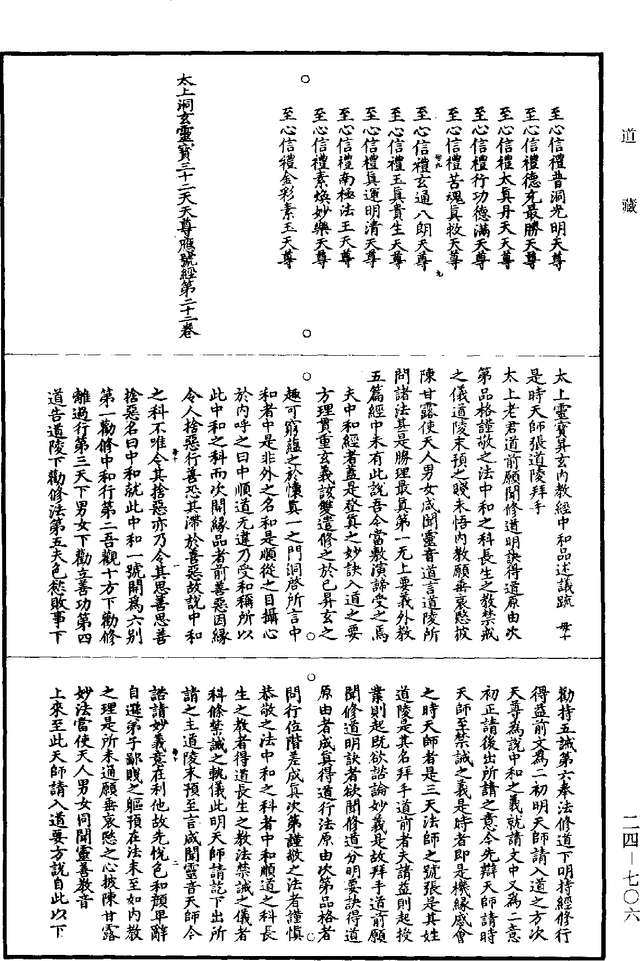 道藏
至心信禮普洞光明天尊
至心信禮德充最勝天尊
至心信禮太真丹天天尊
至心信禮行功德滿天尊
至心信禮苦魂真救天尊
至心信禮玄通八朗天尊
至心信禮玉真貴生天尊
至心信禮真運明清天尊
至心信禮南極法王天尊
至心信禮素煥妙樂天尊
至心信禮金彩素玉天尊
太上洞玄靈寶三十二天天尊應號經第二十二卷
太上靈寶昇玄內教經中和品述議疏
是時天師張道陵拜手
太上老君道前願聞修道明訣得道原由次
第品格謹敬之法中和之科長生之教禁戒
之儀道陵末預之賤未悟內教願垂哀愍披
陳甘露使天人男女咸聞靈音道言道陵所
問諸法甚是勝理最真第一无上要義外教
五篇經中未有此說吾今當敷演諦受之焉
夫中和經者蓋是登真之妙訣入道之要
方理貫重玄義該雙遣修之於已昇玄之
趣可窮蘊之於懷真一之門洞啓所言中
和者中是非外之名和是順從之目攝心
於內呼之曰中順道无違乃受和稱所以
此中和之科而次問緣品者前善惡因緣
令人捨惡行善恐其滯於善惡故說中和
之科不唯令其捨惡亦乃令其思善思善
捨惡名曰中和就此中和一號開為六別
第一勸修中和行第二吾觀十方下勸修
離過行第三天下男女下勸立善功第四
道告道陵下勸修法第五夫色慾敗事下
勸持五誡第六奉法修道下明持經修行
得益前文為二初明天師請入道之方次
天尊為說中和之義就請文中又為二意
初正請後出所請之意今先辯天師請時
天師至禁誡之義是時者即是機緣感會
之時天師者是三天法師之號張是其姓
道陵是其名拜手道前者夫諸益則起投
業則起既欲諮論妙義是故拜手道前願
聞修道明訣者欲聞修道分明要訣得道
原由者成真得道行法原由次第品格者
問行位階差成真次第謹敬之法者謹慎
恭敬之法中和之科者中和順道之科長
生之教者得道長生之教法禁誡之儀者
科條禁誡之軌儀此明天師請訖下出所
請之主道陵末預至言咸聞靈音天師今
諮請妙義意在利他故先悅色和顏卑辭
自遜弟子鄙賤之軀預在法末至如內教
之理是所未通願垂哀愍之心披陳甘露
妙法當使天人男女同聞靈善教音
上來至此天師請入道要方說自此以下
二四—七〇六